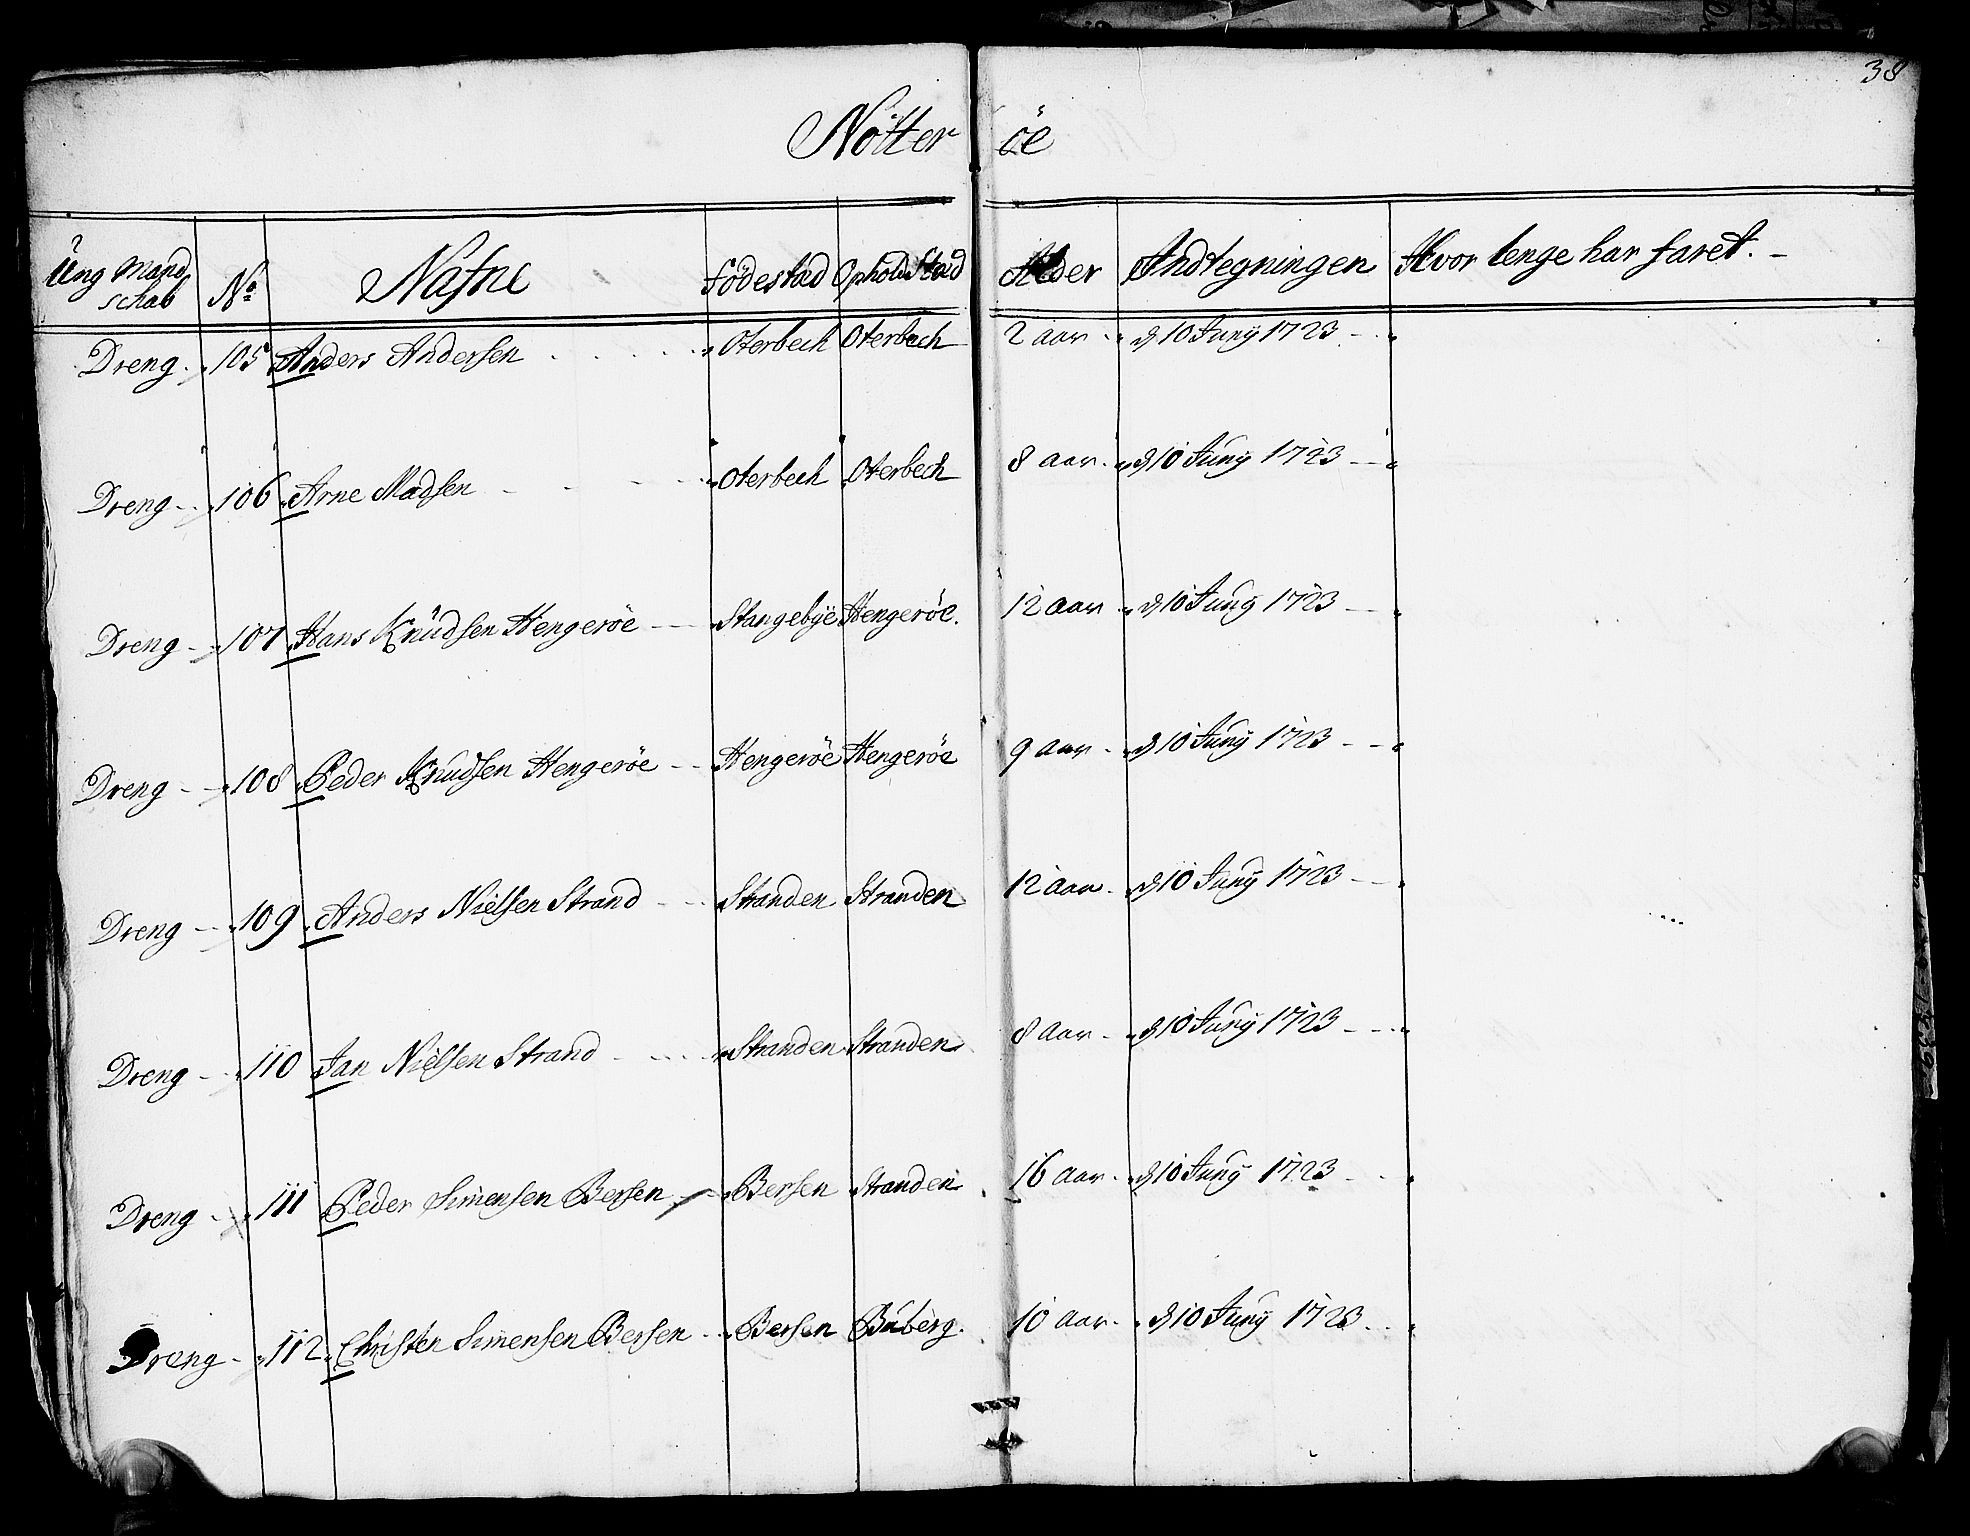 38
Nötter öe
Üng Mand schab Nº Nafne Födestæd Ophold Stæd Alder Andtegningen Hvor lenge har faret. -
Dreng 105 Anders Andersen Oterbech Oterbech 2 aar d 10 Junÿ 1723
Dreng 106 Arne Madsen Oterbech Oterbech 8 aar d 10 Junÿ 1723
Dreng 107 Hans Knüdsen Hengeröe Stangebÿe Hengeröe. 12 aar d 10 Junÿ 1723
Dreng 108 Peder Knudsen Hengeröe Hengeröe Hengeröe 9 aar d 10 Junÿ 1723
Dreng 109 Anders Nielsen Strand Stranden Stranden 12 aar d 10 Junÿ 1723
Dreng 110 Jan Nielsen Strand Stranden Stranden 8 aar d 10 Junÿ 1723
Dreng 111 Peder Simensen Bersen Bersen Stranden 16 aar d 10 Junÿ 1723
Dreng 112 Christen Simensen Bersen Bersen Büberg. 10 aar d 10 Junÿ 1723